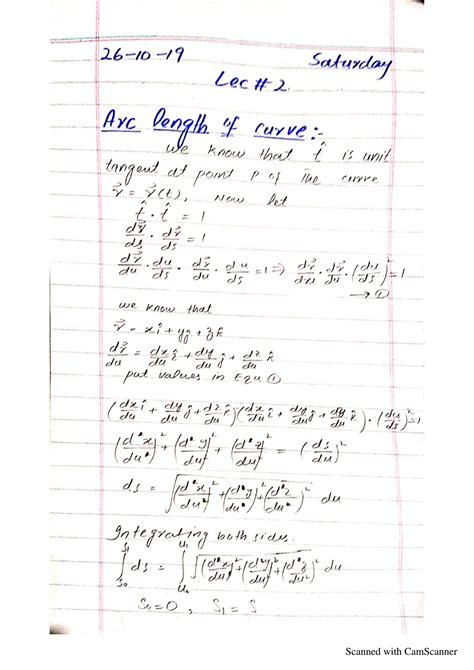 26-10-19 Saturday
Lec # 2
Arc Length of curve:-
we know that t̂ is unit
tangent at point P of the curve
r⃗ = r⃗(t), Now let
t̂ · t̂ = 1
dr⃗/ds · dr⃗/ds = 1
dr⃗/du · du/ds · dr⃗/du · du/ds = 1 ⇒ dr⃗/du · dr⃗/du · (du/ds)² = 1
→ ①
we know that
r⃗ = xî + yĵ + zk̂
dr⃗/du = dx/du î + dy/du ĵ + dz/du k̂
put values in Equ ①
(dx/du î + dy/du ĵ + dz/du k̂)(dx/du î + dy/du ĵ + dy/du k̂) · (du/ds)² = 1
(d²x/du²)² + (d²y/du²)² + (d²z/du²)² = (ds/du)²
ds = √((d²x/du²)² + (d²y/du²)² + (d²z/du²)²) du
Integrating both sides.
∫_{S₀}^{S₁} ds = ∫_{u₀}^{u₁} √((d²x/du²)² + (d²y/du²)² + (d²z/du²)²) du
S₀ = 0, S₁ = S
Scanned with CamScanner